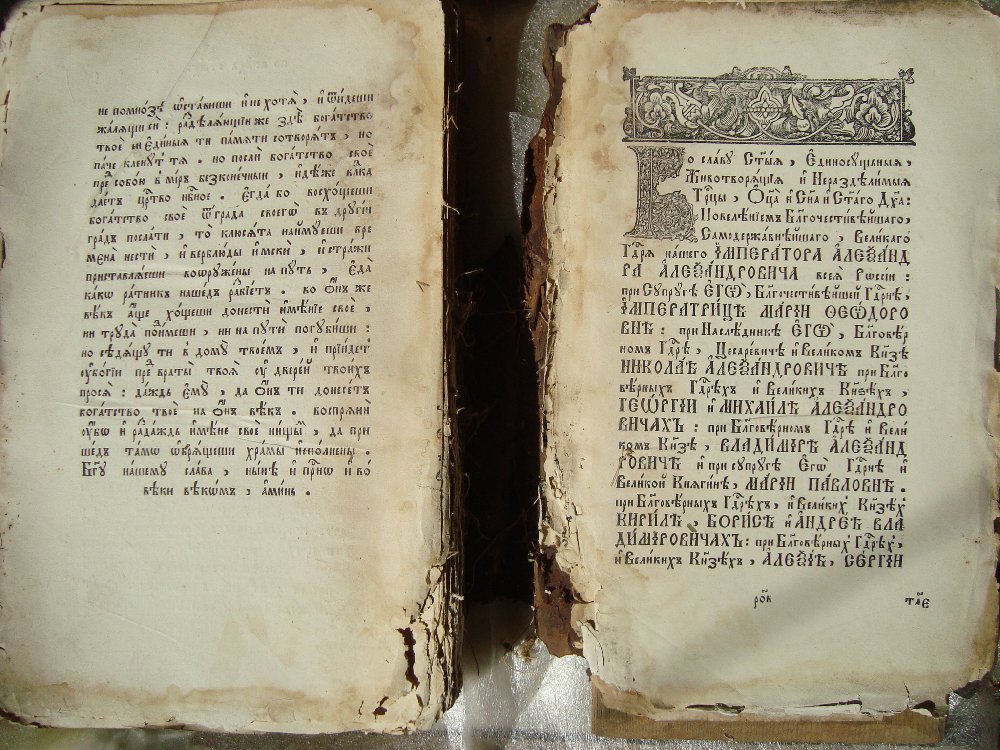 не помно́зѣ ѡ҆ста́виши и҆ не хотѧ̀, и҆ ѿи́деши
жалѧ́щи сѝ: раздѣлѧ́ющїи же здѣ̀ бога́тство
твоѐ ни є҆ди́ныѧ ти па́мѧти сотворѧ́тъ, но
па́че клену́тъ тѧ̀. но послѝ бога́тство своѐ
пре́д̾ собо́ю в̾ мі́ръ безконе́чный, и҆дѣ́же влⷣка
да́стъ црⷭ҇тво нбⷭ҇ное. є҆гда́ бо восхо́щеши
бога́тство своѐ ѿ гра́да своегѡ̀ въ дрꙋгі́й
гра́дъ посла́ти, то̀ клюсѧ́та найму́еши бре
мена̀ нестѝ, и҆ верблю́ды и҆ мскѝ, и҆ стра́жи
приставлѧ́еши воѻрꙋже́ны на пꙋ́ть, є҆да̀
ка́кѡ ра́тникъ наше́дъ разбїе́тъ. во ѻ҆́нъ же
вѣ́къ а҆́ще хо́щеши донестѝ и҆мѣ́нїе своѐ,
ни трꙋда̀ по́ймеши, ни на пꙋтѝ погꙋ́биши:
но сѣдѧ́щꙋ ти в̾ до́мꙋ твое́мъ, и҆ прїи́детъ
ᲂу҆бо́гїй пред̾ врата̀ твоѧ̀ ᲂу҆ две́рей твои́хъ
просѧ̀: да́ждь є҆мꙋ̀, да ѻ҆́нъ ти донесе́тъ
бога́тство твоѐ на ѻ҆́нъ вѣ́къ. воспрѧнѝ
ᲂу҆̀бо и҆ разда́ждь и҆мѣ́нїе своѐ ни́щымъ, да при
ше́дъ та́мѡ ѡ҆брѧ́щеши хра́мы и҆спо́лнены.
Бг҃ꙋ на́шемꙋ сла́ва, ны́нѣ и҆ при́снѡ и҆ во
вѣ́ки вѣкѡ́мъ, а҆ми́нь.
Во сла́вꙋ Ст҃ы́ѧ, Є҆диносꙋ́щныѧ,
Животворѧ́щїѧ и҆ Нераздѣли́мыѧ
Трⷪ҇цы, Ѻ҆ц҃а̀ и҆ Сн҃а и҆ Ст҃а́гѡ Дх҃а:
Повелѣ́нїемъ Бл҃гочести́вѣйшагѡ,
Самодержа́внѣйшагѡ, Вели́кагѡ
Гдⷭ҇рѧ на́шегѡ И҆МПЕРА́ТОРА А҆ЛЕѮА́НД
РА А҆ЛЕѮА́НДРОВИЧА всеѧ̀ Рѡссі́и:
при Сꙋпрꙋ́гѣ Є҆ГѠ̀, Бл҃гочести́вѣйшей Гдⷭ҇рнѣ,
И҆МПЕРАТРИ́ЦѢ МАРІ́И ѲЕѠ́ДОРО
ВНѢ: при Наслѣ́дникѣ Є҆ГѠ̀, Бл҃говѣ́р
номъ Гдⷭ҇рѣ, Цесаре́вичѣ и҆ Вели́комъ Кнѧ́зѣ
НИКОЛА́Ѣ А҆ЛЕѮА́НДРОВИЧѢ при Бл҃го
вѣ́рныхъ Гдⷭ҇рѣхъ и҆ Вели́кихъ Кнѧзѣ́хъ,
ГЕѠ́РГІИ и҆ МИХАИ́ЛѢ А҆ЛЕѮА́НДРО
ВИЧАХЪ: при Бл҃говѣ́рномъ Гдⷭ҇рѣ и҆ Вели́
комъ Кнѧ́зѣ, ВЛАДИ́МІРѢ А҆ЛЕѮА́НД
РОВИЧѢ и҆ при сꙋпрꙋ́гѣ Є҆гѡ̀ Гдⷭ҇рнѣ и҆
Вели́кой Кнѧги́нѣ, МАРІ́И ПА́ВЛОВНѢ.
при Бл҃говѣ́рныхъ Гдⷭ҇рѣхъ, и҆ Вели́кихъ Кнѧзѣ́хъ
КИРИ́ЛѢ, БОРИ́СѢ и҆ А҆НДРЕ́Ѣ ВЛА
ДИ́МІРОВИЧАХЪ: при Бл҃говѣ́рныхъ Гдⷭ҇рѣхъ,
и҆ Вели́кихъ Кнѧзѣ́хъ, А҆ЛЕѮІ́Ѣ, СЕ́РГІИ
та́е